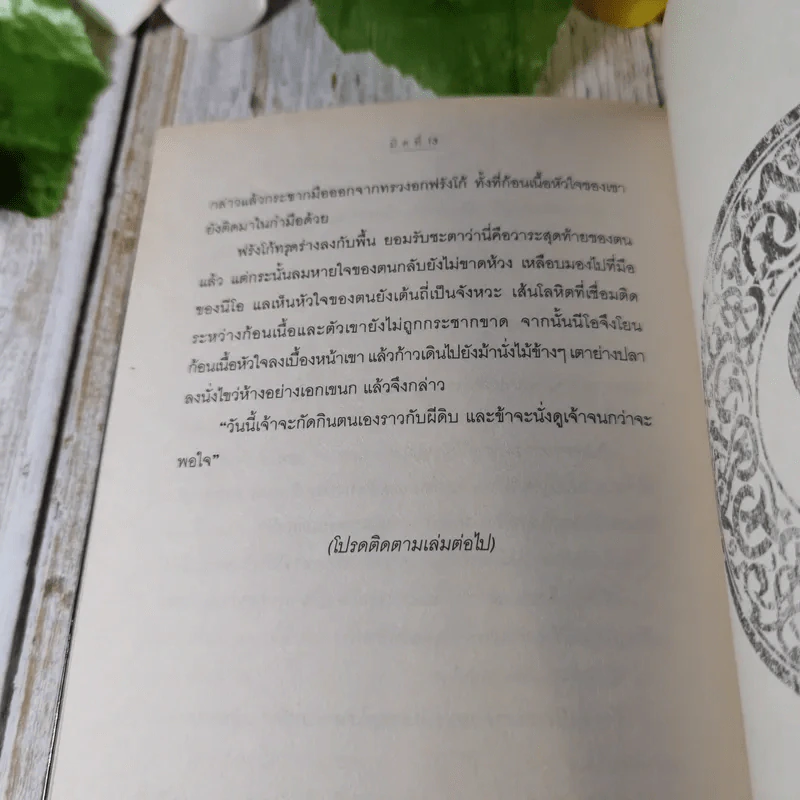 มิติที่ 13
กล่าวแล้วกระชากมือออกจากทรวงอกฟรังโก้ ทั้งที่ก้อนเนื้อหัวใจของเขา
ยังติดมาในกำมือด้วย
ฟรังโก้ทรุดร่างลงกับพื้น ยอมรับชะตาว่านี่คือวาระสุดท้ายของตน
แล้ว แต่กระนั้นลมหายใจของตนกลับยังไม่ขาดห้วง เหลือบมองไปที่มือ
ของนีโอ แลเห็นหัวใจของตนยังเต้นถี่เป็นจังหวะ เส้นโลหิตที่เชื่อมติด
ระหว่างก้อนเนื้อและตัวเขายังไม่ถูกกระชากขาด จากนั้นนีโอจึงโยน
ก้อนเนื้อหัวใจลงเบื้องหน้าเขา แล้วก้าวเดินไปยังม้านั่งไม้ข้างๆ เตาย่างปลา
ลงนั่งไขว่ห้างอย่างเอกเขนก แล้วจึงกล่าว
“วันนี้เจ้าจะกัดกินตนเองราวกับผีดิบ และข้าจะนั่งดูเจ้าจนกว่าจะ
พอใจ”
(โปรดติดตามเล่มต่อไป)